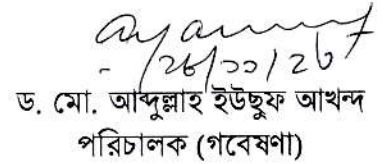 ড. মো. আব্দুল্লাহ ইউছুফ আখন্দ
পরিচালক (গবেষণা)